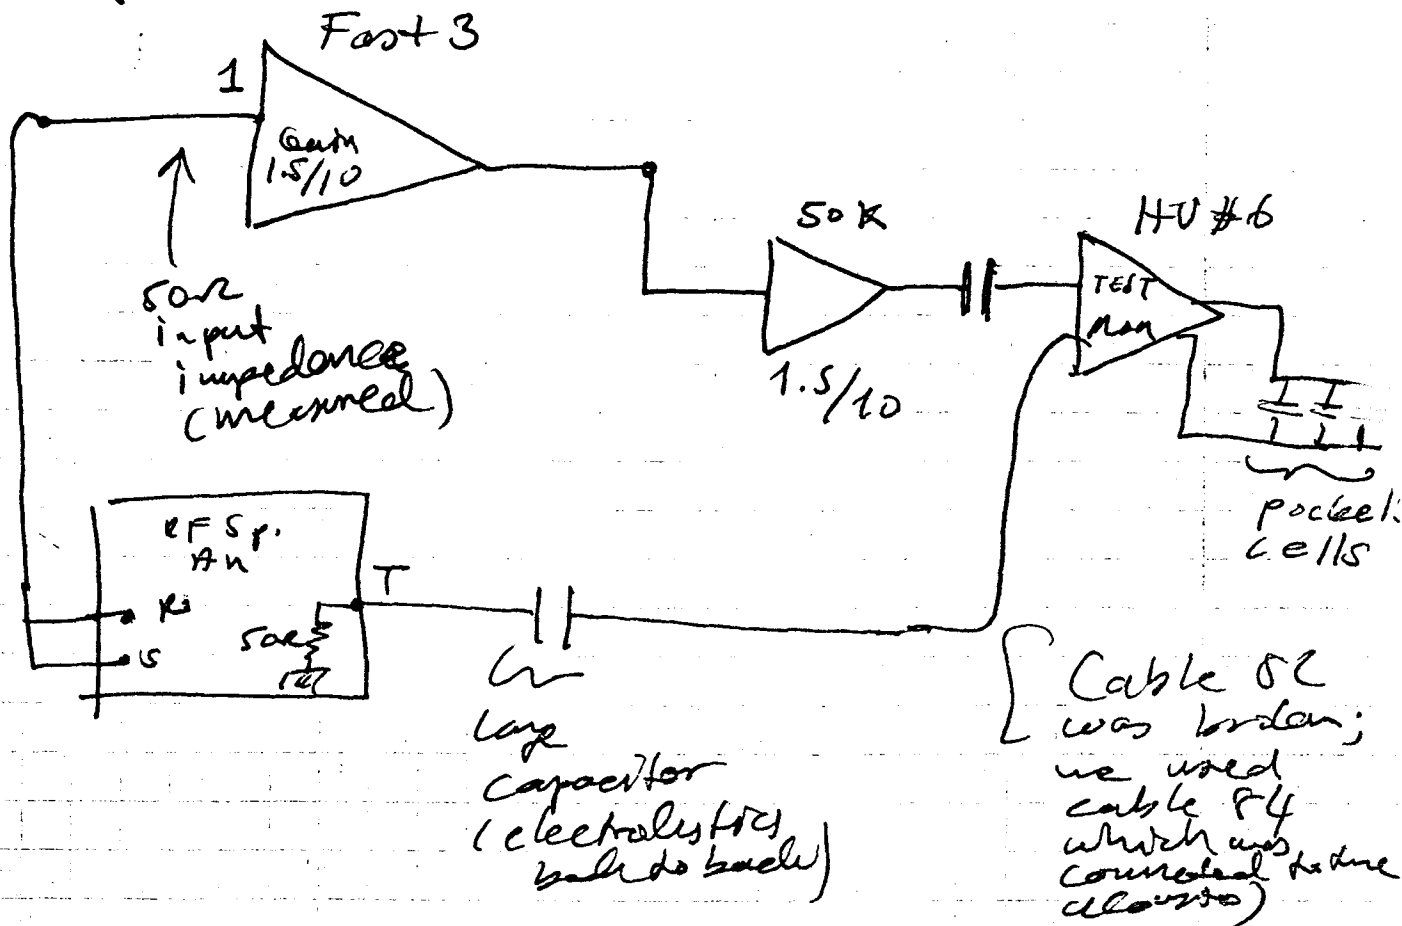 Fast 3
1
Gain
1.5/10
50 K
HV #6
50Ω
input
impedance
(measured)
TEST
Mon
1.5/10
pockel
cells
RF Sp.
An
T
50Ω
large
capacitor
(electrolytics
back to back)
Cable 82
was broken;
we used
cable 84
which was
connected to the